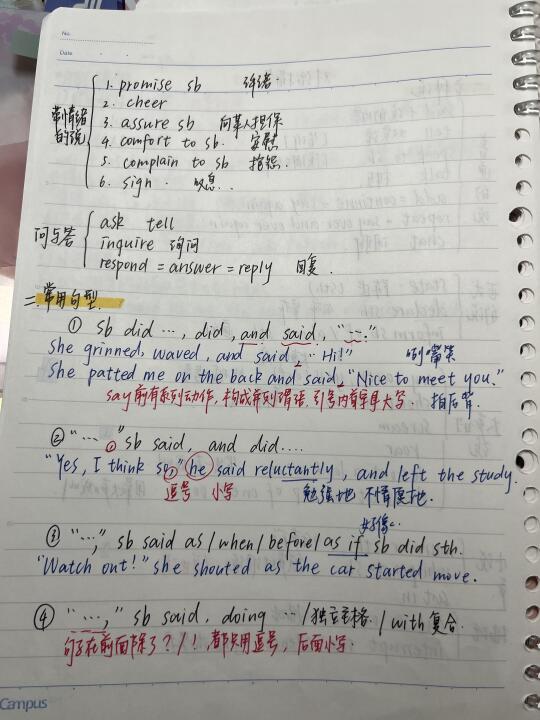 No.
Date
带情绪的说
1. promise sb 许诺
2. cheer
3. assure sb 向某人担保
4. comfort to sb. 安慰
5. complain to sb 抱怨.
6. sign. 叹息..
问与答
ask tell
inquire 询问
respond = answer = reply 回复.
二.常用句型
① sb did …, did, and said, "…."
She grinned, waved, and said, "Hi!" 咧嘴笑
She patted me on the back and said, "Nice to meet you."
say前有系列动作,构成系列谓语,引号内首字母大写. 拍后背.
② "… ," sb said, and did....
"Yes, I think so," he said reluctantly, and left the study.
逗号 小写 勉强地 不情愿地.
好像..
③ "…," sb said as/when/before/as if sb did sth.
"Watch out!" she shouted as the car started move.
④ "…," sb said, doing …/独立主格./with复合.
句子在前面除了?/!,都只用逗号,后面小写.
Campus